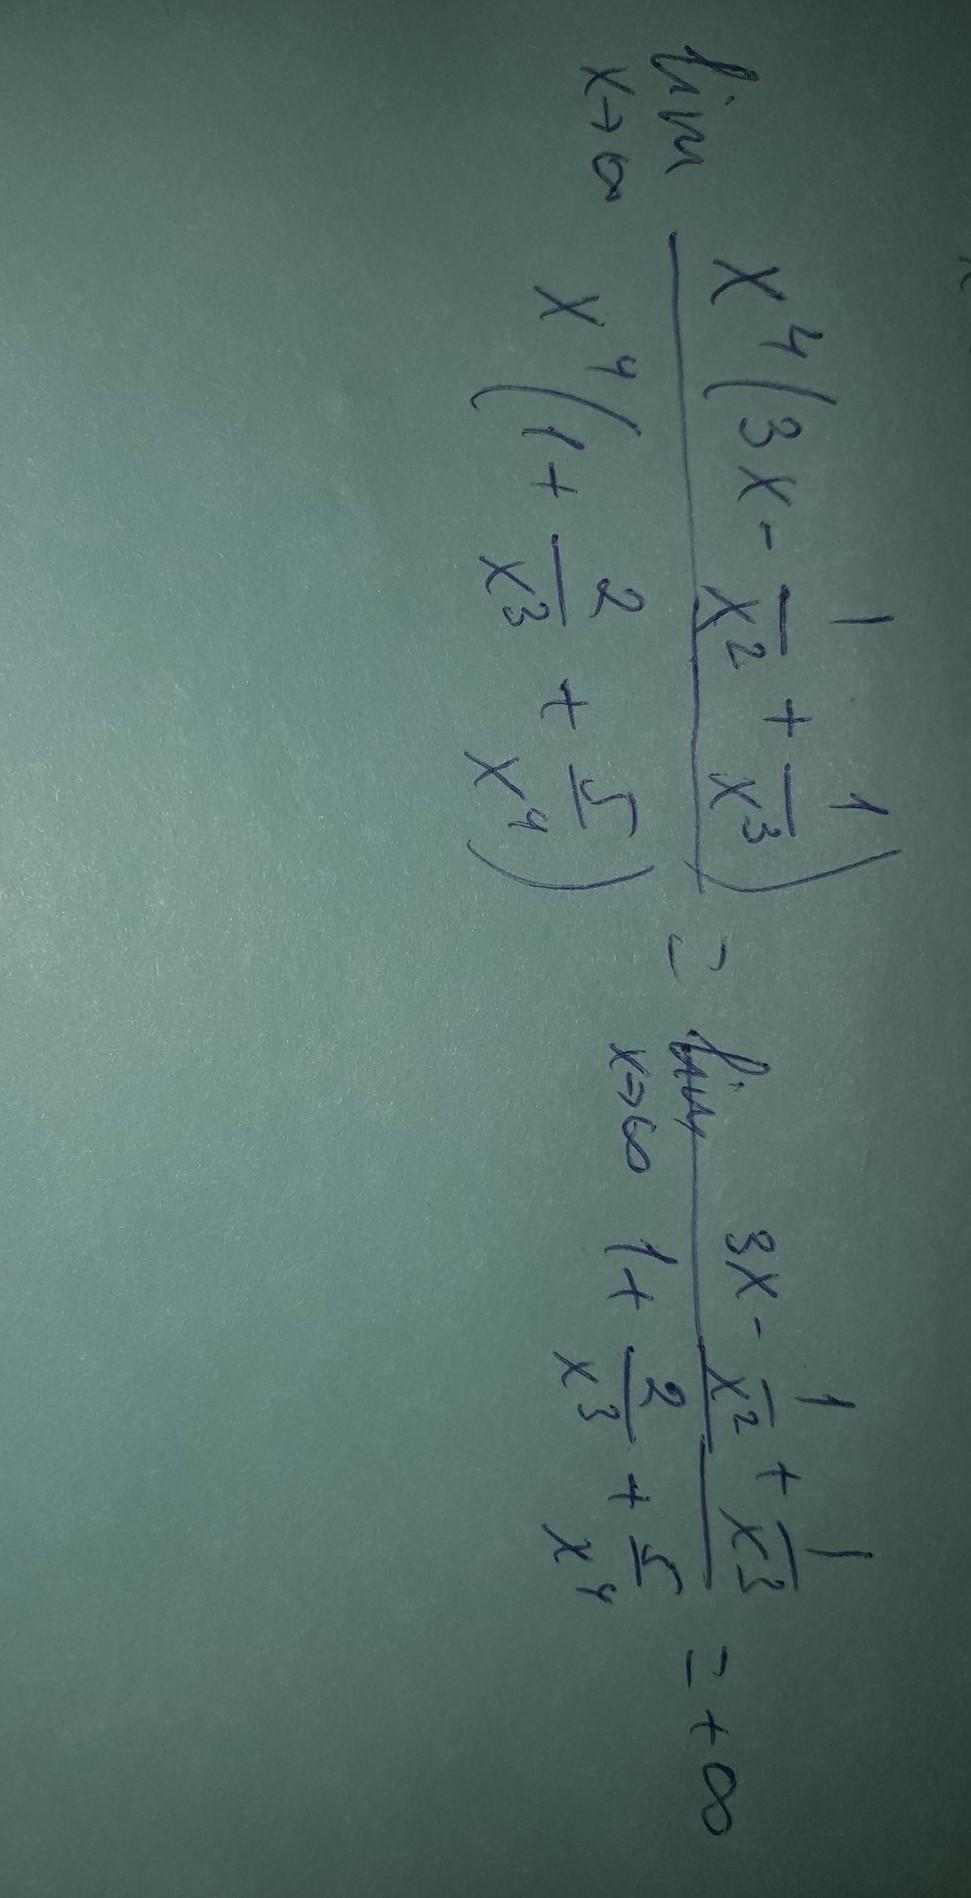 lim x→∞ x^4(3x - 1/x^2 + 1/x^3) / x^4(1 + 2/x^3 + 5/x^4) = lim x→∞ (3x - 1/x^2 + 1/x^3) / (1 + 2/x^3 + 5/x^4) = +∞